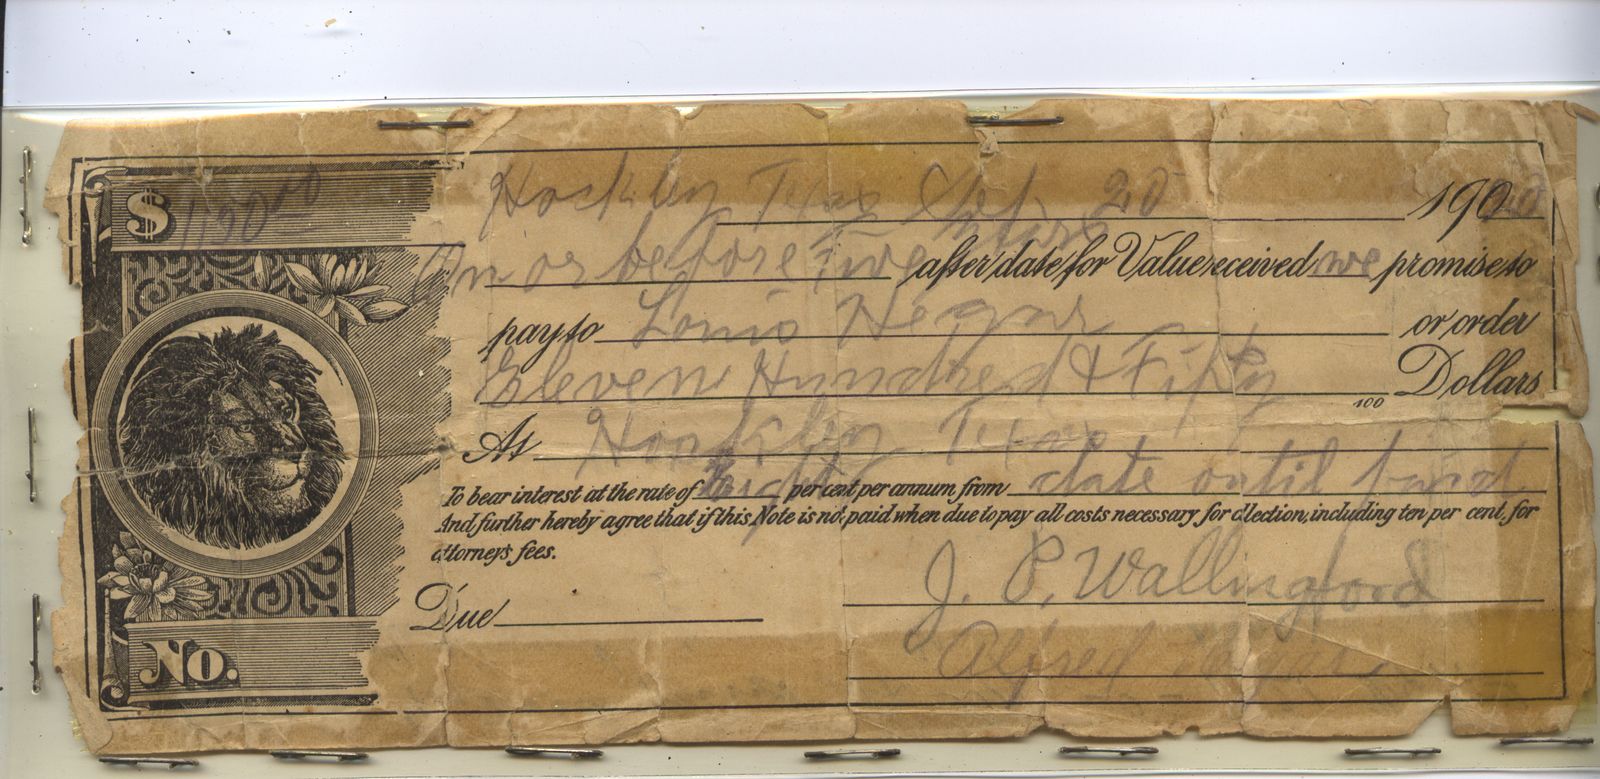 $ 1150.00
Hockley Texas Sept. 20 1920
On or before five years after date for Value received we promise to
pay to Louis Hegar or order
Eleven Hundred & Fifty 100 Dollars
At Hockley Texas
To bear interest at the rate of Eight per cent per annum from date until paid
And further hereby agree that if this Note is not paid when due to pay all costs necessary for collection, including ten per cent. for
attorney's fees.
Due
J. P. Wallingford
No.
Alfred